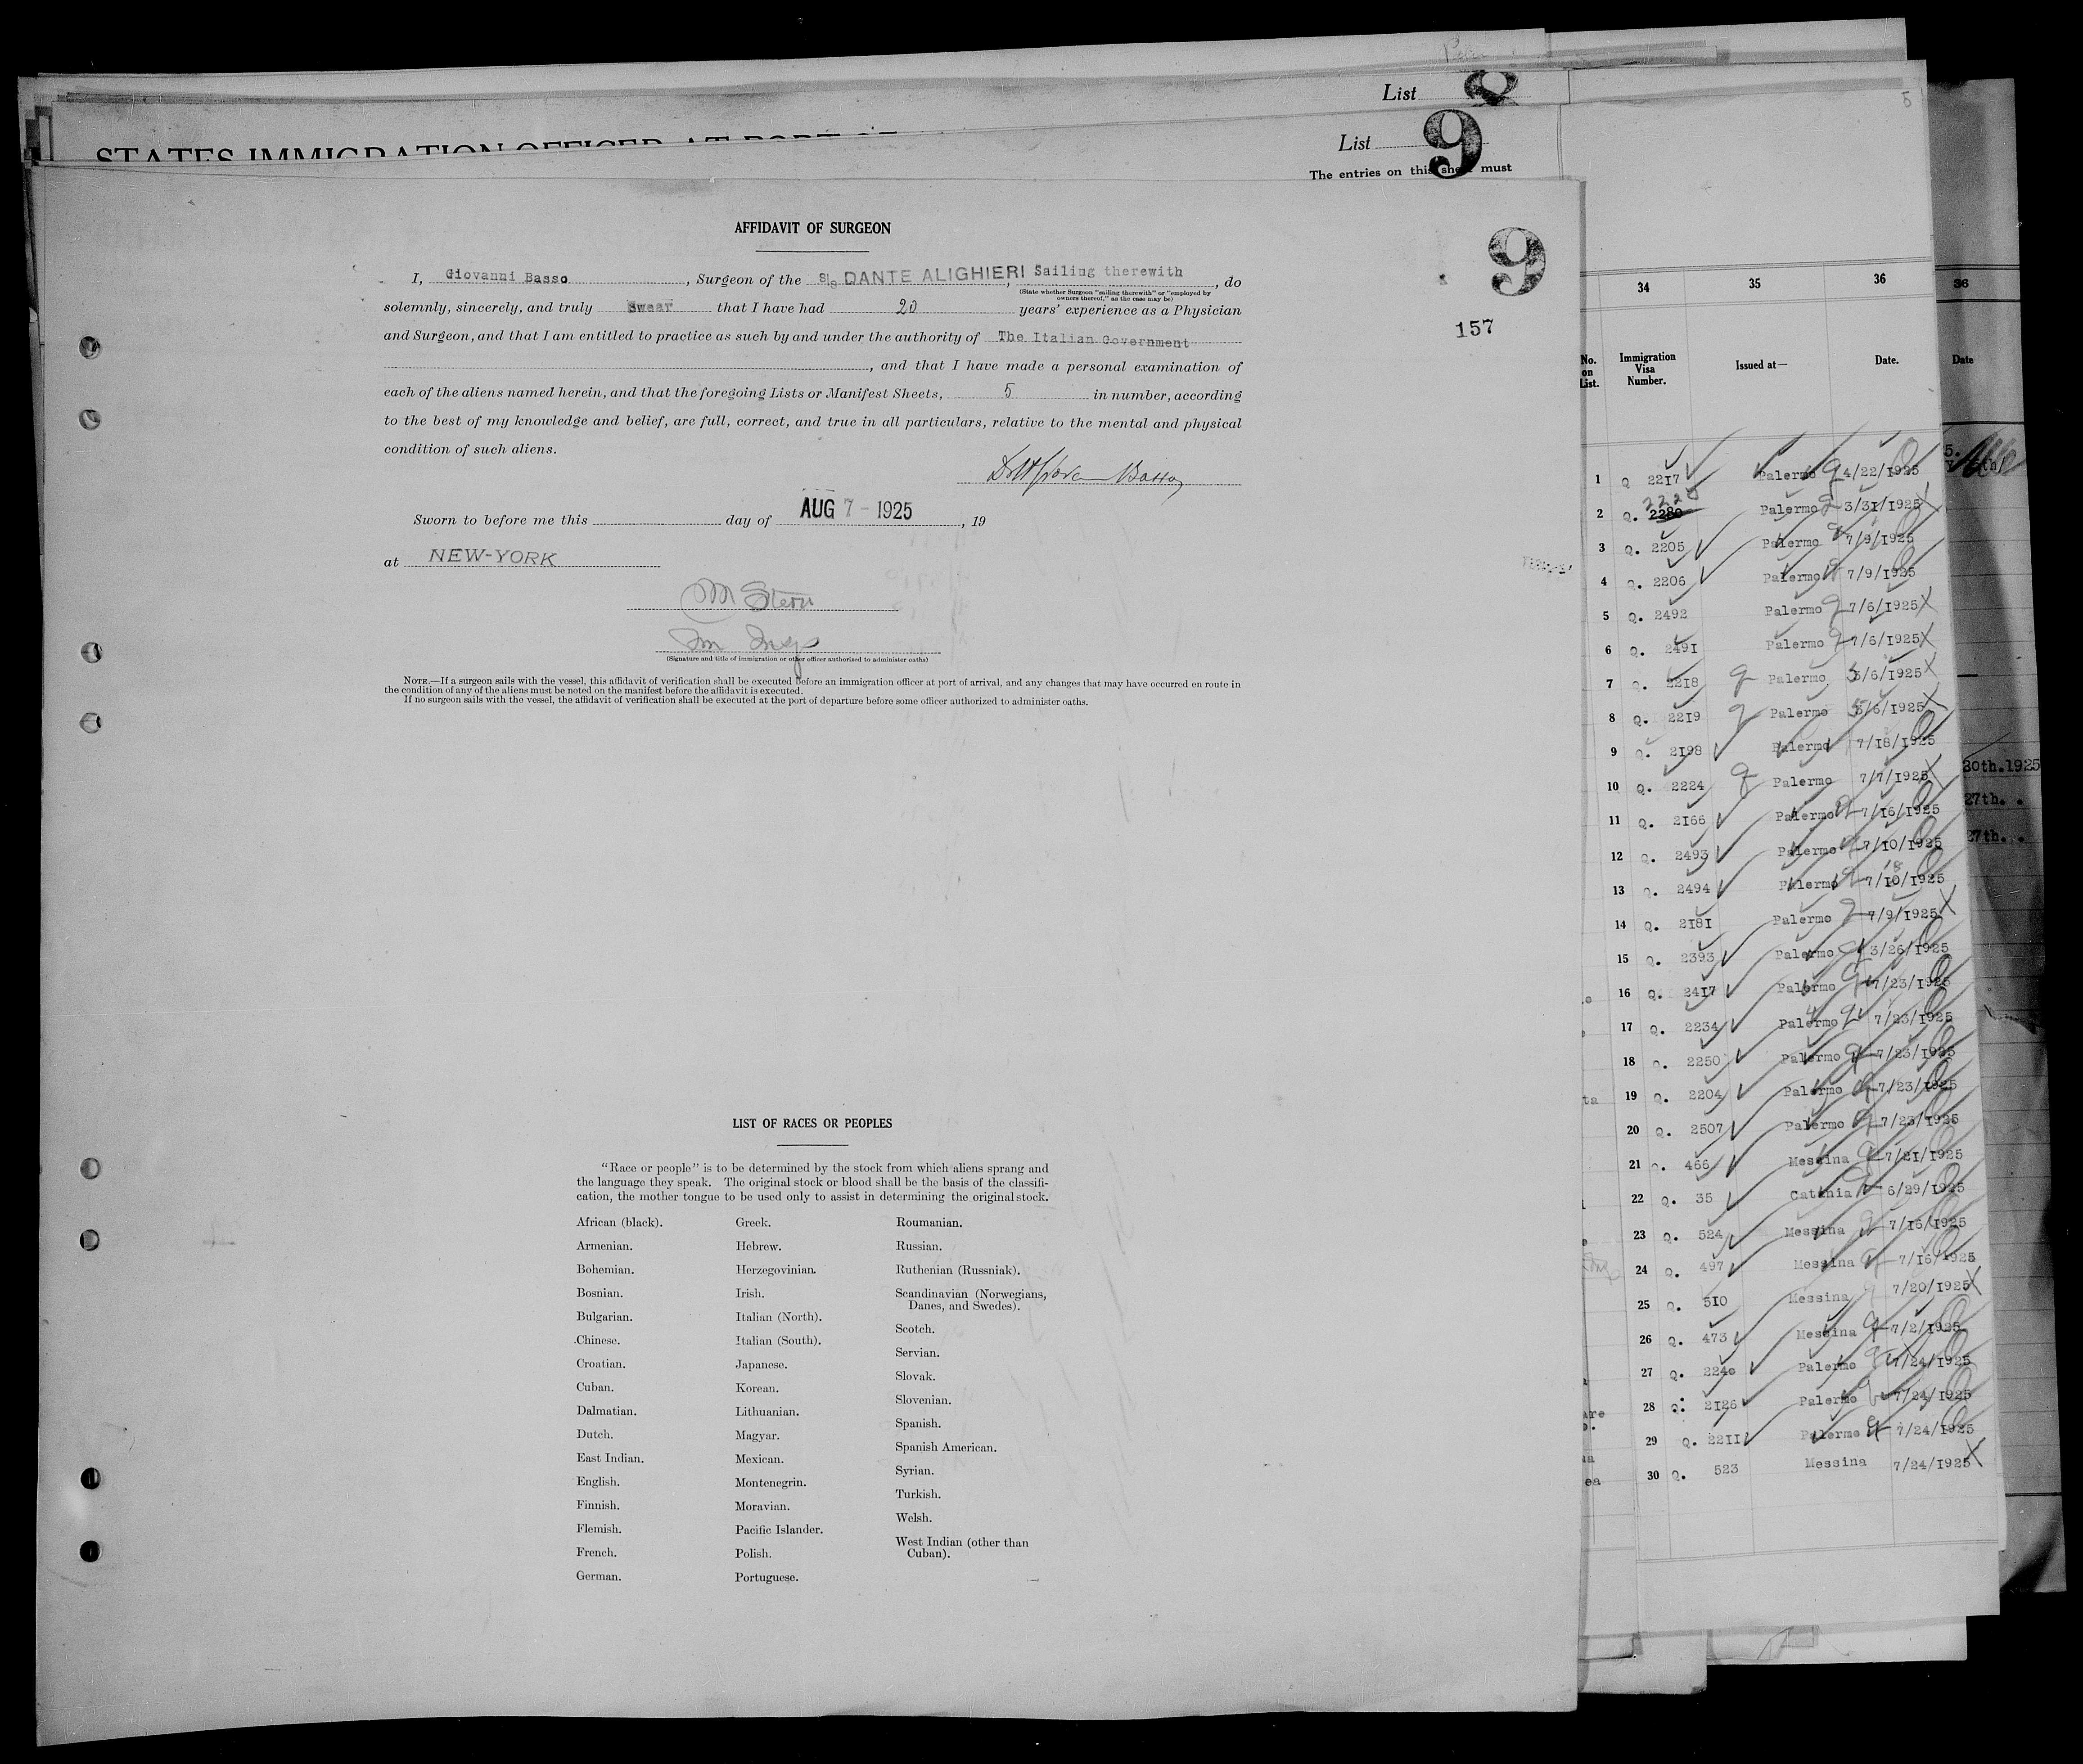 List 8
STATES IMMIGRATION OFFICER AT PORT OF
List 9
The entries on this sheet must
AFFIDAVIT OF SURGEON
9
157
I, Giovanni Basso, Surgeon of the S/S DANTE ALIGHIERI, Sailing therewith, do
(State whether Surgeon "sailing therewith" or "employed by
owners thereof," as the case may be)
solemnly, sincerely, and truly swear that I have had 20 years' experience as a Physician
and Surgeon, and that I am entitled to practice as such by and under the authority of The Italian Government
, and that I have made a personal examination of
each of the aliens named herein, and that the foregoing Lists or Manifest Sheets, 5 in number, according
to the best of my knowledge and belief, are full, correct, and true in all particulars, relative to the mental and physical
condition of such aliens.
Basso
Sworn to before me this day of AUG 7 - 1925, 19
at NEW-YORK
M Stern
Im Insp
(Signature and title of immigration or other officer authorized to administer oaths)
NOTE.—If a surgeon sails with the vessel, this affidavit of verification shall be executed before an immigration officer at port of arrival, and any changes that may have occurred en route in
the condition of any of the aliens must be noted on the manifest before the affidavit is executed.
If no surgeon sails with the vessel, the affidavit of verification shall be executed at the port of departure before some officer authorized to administer oaths.
LIST OF RACES OR PEOPLES
"Race or people" is to be determined by the stock from which aliens sprang and
the language they speak. The original stock or blood shall be the basis of the classifi-
cation, the mother tongue to be used only to assist in determining the original stock.
African (black).
Armenian.
Bohemian.
Bosnian.
Bulgarian.
Chinese.
Croatian.
Cuban.
Dalmatian.
Dutch.
East Indian.
English.
Finnish.
Flemish.
French.
German.
Greek.
Hebrew.
Herzegovinian.
Irish.
Italian (North).
Italian (South).
Japanese.
Korean.
Lithuanian.
Magyar.
Mexican.
Montenegrin.
Moravian.
Pacific Islander.
Polish.
Portuguese.
Roumanian.
Russian.
Ruthenian (Russniak).
Scandinavian (Norwegians,
Danes, and Swedes).
Scotch.
Servian.
Slovak.
Slovenian.
Spanish.
Spanish American.
Syrian.
Turkish.
Welsh.
West Indian (other than
Cuban).
5
34 35 36
No. on List. Immigration Visa Number. Issued at— Date.
1 Q 2217 Palermo 4/22/1925
2 Q. 2220 Palermo 3/31/1925
3 Q. 2205 Palermo 7/9/1925
4 Q. 2206 Palermo 7/9/1925
5 Q. 2492 Palermo 7/6/1925
6 Q. 2491 Palermo 7/6/1925
7 Q. 2218 Palermo 5/6/1925
8 Q. 2219 Palermo 5/6/1925
9 Q. 2198 Palermo 7/18/1925
10 Q. 2224 Palermo 7/7/1925
11 Q. 2166 Palermo 7/16/1925
12 Q. 2493 Palermo 7/10/1925
13 Q. 2494 Palermo 7/10/1925
14 Q. 2181 Palermo 7/9/1925
15 Q. 2393 Palermo 3/26/1925
16 Q. 2417 Palermo 7/23/1925
17 Q. 2234 Palermo 7/23/1925
18 Q. 2250 Palermo 7/23/1925
19 Q. 2204 Palermo 7/23/1925
20 Q. 2507 Palermo 7/23/1925
21 Q. 466 Messina 7/21/1925
22 Q. 35 Catania 6/29/1925
23 Q. 524 Messina 7/15/1925
24 Q. 497 Messina 7/16/1925
25 Q. 510 Messina 7/20/1925
26 Q. 473 Messina 7/2/1925
27 Q. 2240 Palermo 7/24/1925
28 Q. 2126 Palermo 7/24/1925
29 Q. 2211 Palermo 7/24/1925
30 Q. 523 Messina 7/24/1925
36
Date
30th.1925
27th. .
27th. .